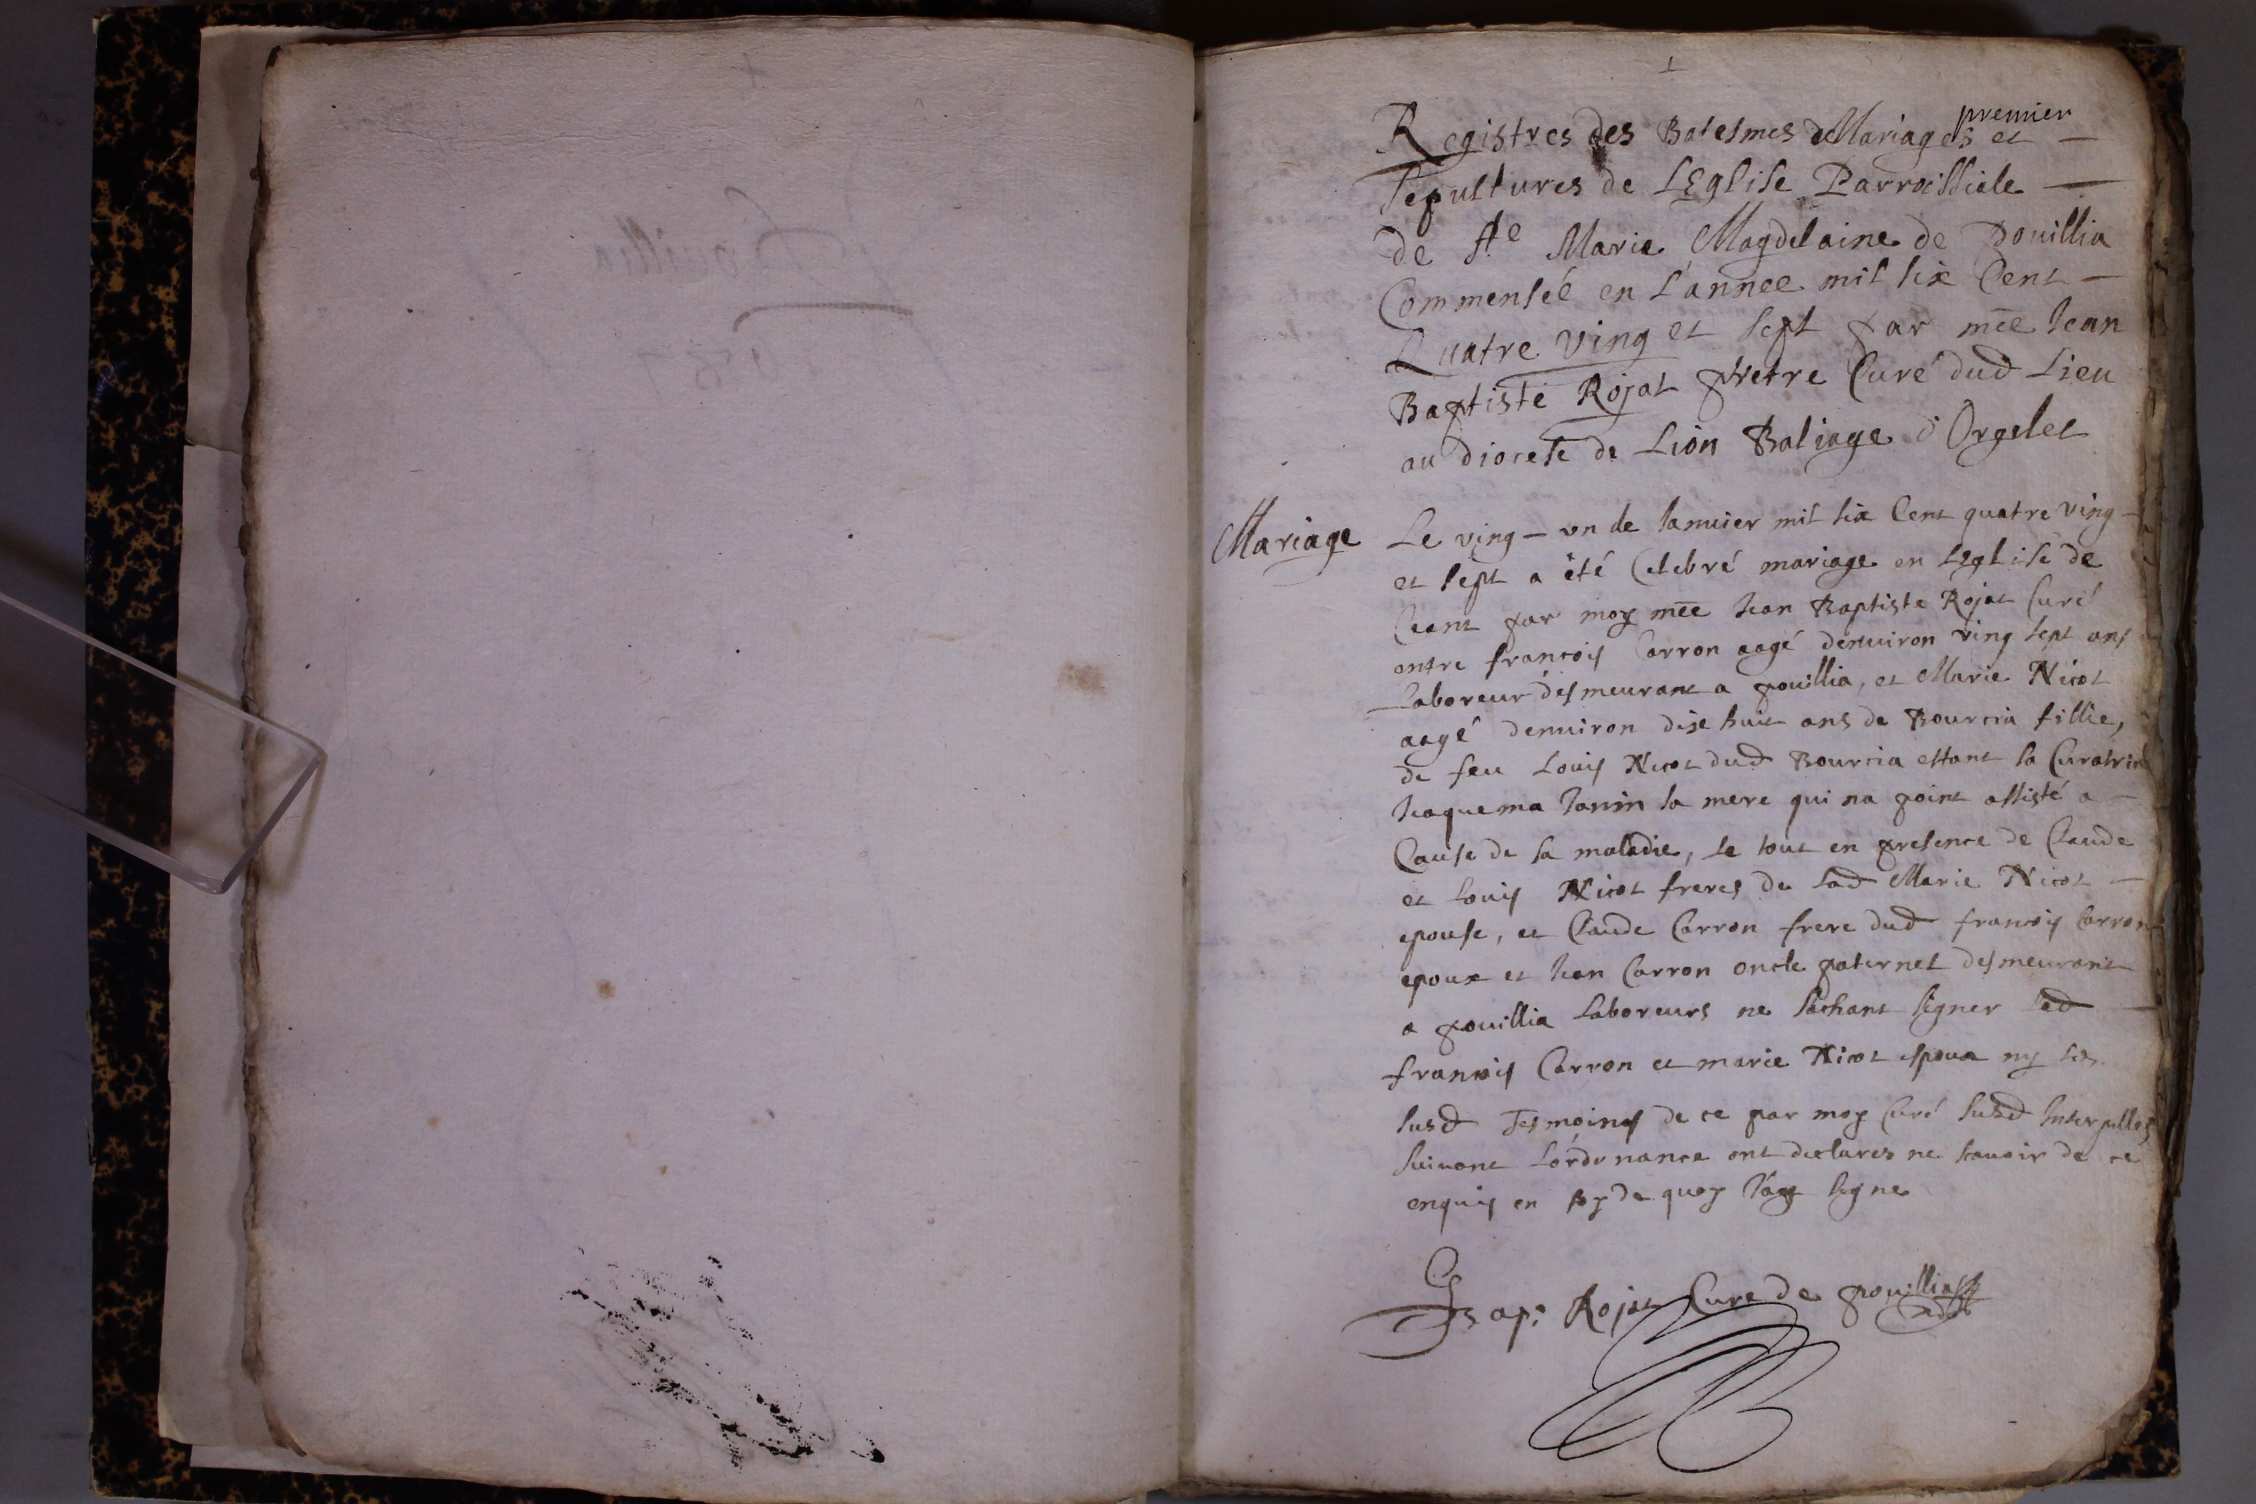 1
premier
Registres des Batesmes Mariages et
Sepultures de LEglise Parroissiale
de Ste Marie Magdelaine de Pouillia
Commensée en L'annee mil six Cent
Quatre ving et sept par mre Jean
Baptiste Rojat prêtre Curé dud Lieu
au diocese de Lion Baliage d'Orgelet
Mariage
Le ving - un de Januier mil six Cent quatre ving
et sept a été Celebré mariage en Leglise de
Ceant par moy mre Jean Baptiste Rojat Curé
entre francois Carron aagé denuiron ving sept ans
Laboreur desmeurant a pouillia, et Marie Nicot
aagé denuiron dixe huit ans de Bourcia fillie,
de feu Louis Nicot dud Bourcia estant sa Curatrice
Jaquema Janin sa mere qui na point assisté a
Cause de sa maladie, le tout en presence de Claude
et Louis Nicot freres de lad Marie Nicot
epouse, et Claude Carron frere dud francois Carron
epoux et Jean Carron oncle paternel desmeurant
a pouillia Laboreurs ne sachant signer led
francois Carron et marie Nicot espoux ny les
susd Tesmoings de ce par moy Curé susd Interpelles
suiuant Lordonnance ont declarez ne scauoir de ce
enquis en foy de quoy J'ay signe
Bap: Rojat Cure de pouillia